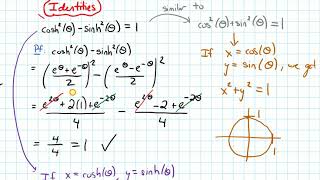 Identities
similar to
cosh²(θ) - sinh²(θ) = 1
cos²(θ) + sin²(θ) = 1
Pf: cosh²(θ) - sinh²(θ)
= ((e^θ + e^-θ)/2)² - ((e^θ - e^-θ)/2)²
= (e^2θ + 2(1) + e^-2θ)/4 - (e^2θ - 2 + e^-2θ)/4
= 4/4 = 1 ✓
If x = cos(θ)
y = sin(θ), we get
x² + y² = 1
If x = cosh(θ), y = sinh(θ)